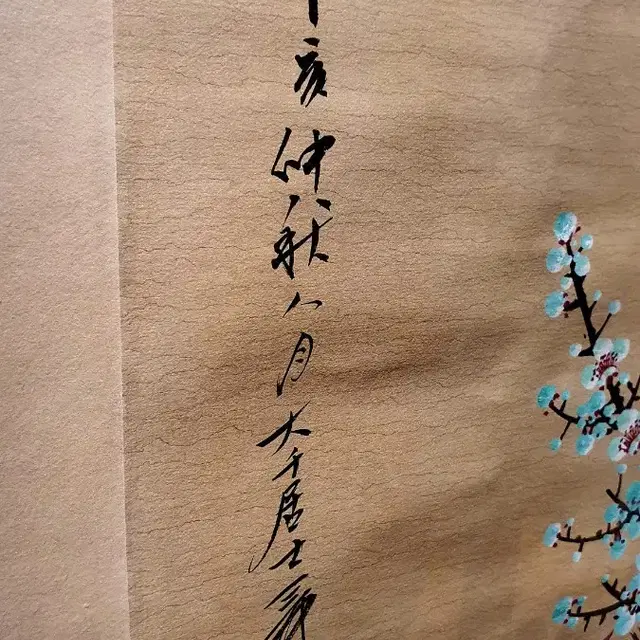 亥仲秋八月大千居士